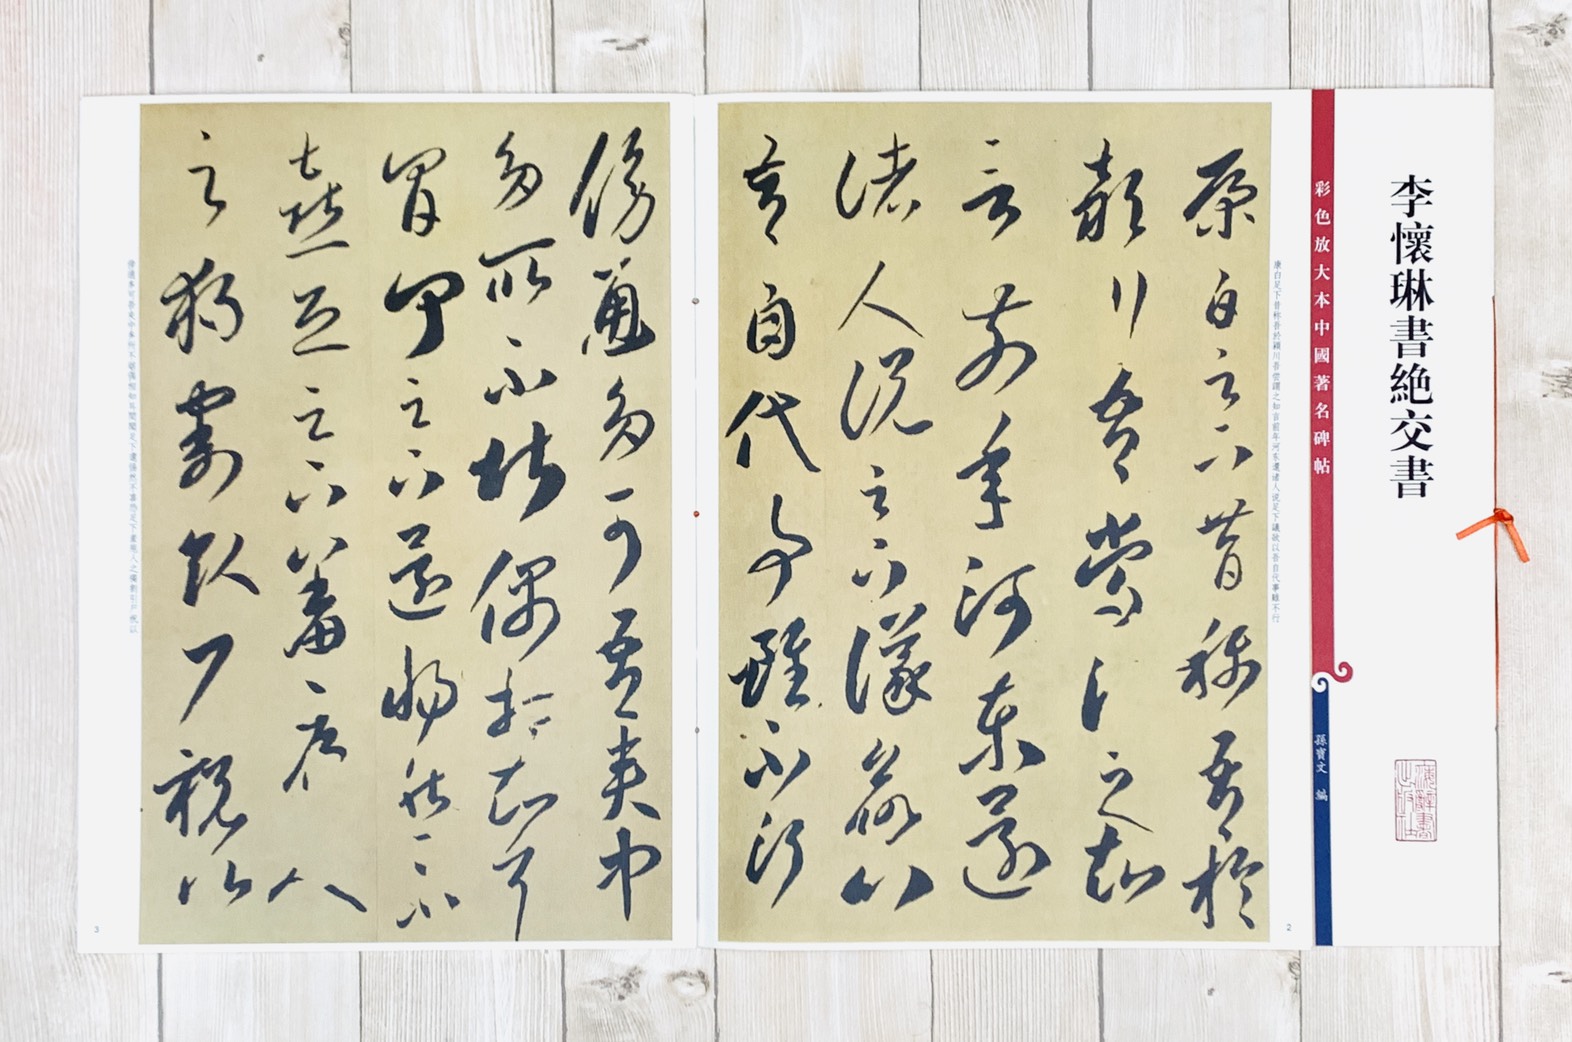 李懷琳書絶交書
彩色放大本中國著名碑帖
孫寶文 編
康白足下昔稱吾於
潁川吾嘗謂之知
言前年河東還
諸人説足下議故以
吾自代事雖不行
康白足下昔稱吾於潁川吾嘗謂之知言前年河東還諸人説足下議故以吾自代事雖不行
2
傍通多可吾直中
多所不堪偶相知耳
間聞足下遷惕然不
喜恐足下羞庖人
之獨割引尸祝以
傍通多可吾直中多所不堪偶相知耳間聞足下遷惕然不喜恐足下羞庖人之獨割引尸祝以
3